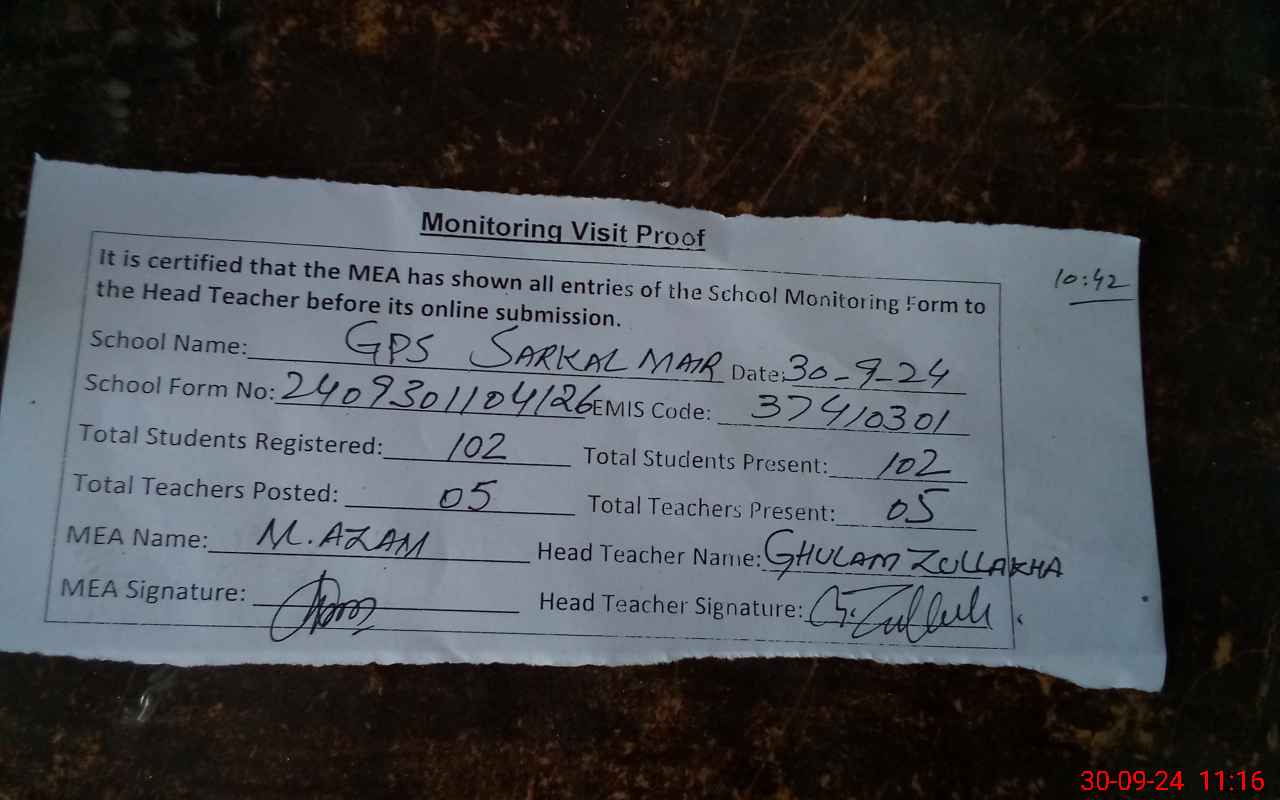 Monitoring Visit Proof
10:42
It is certified that the MEA has shown all entries of the School Monitoring Form to
the Head Teacher before its online submission.
School Name: GPS SARKAL MAIR Date: 30-9-24
School Form No: 2409301104126 EMIS Code: 37410301
Total Students Registered: 102 Total Students Present: 102
Total Teachers Posted: 05 Total Teachers Present: 05
MEA Name: M. AZAM Head Teacher Name: GHULAM ZULLAKHA
MEA Signature: Head Teacher Signature:
30-09-24 11:16